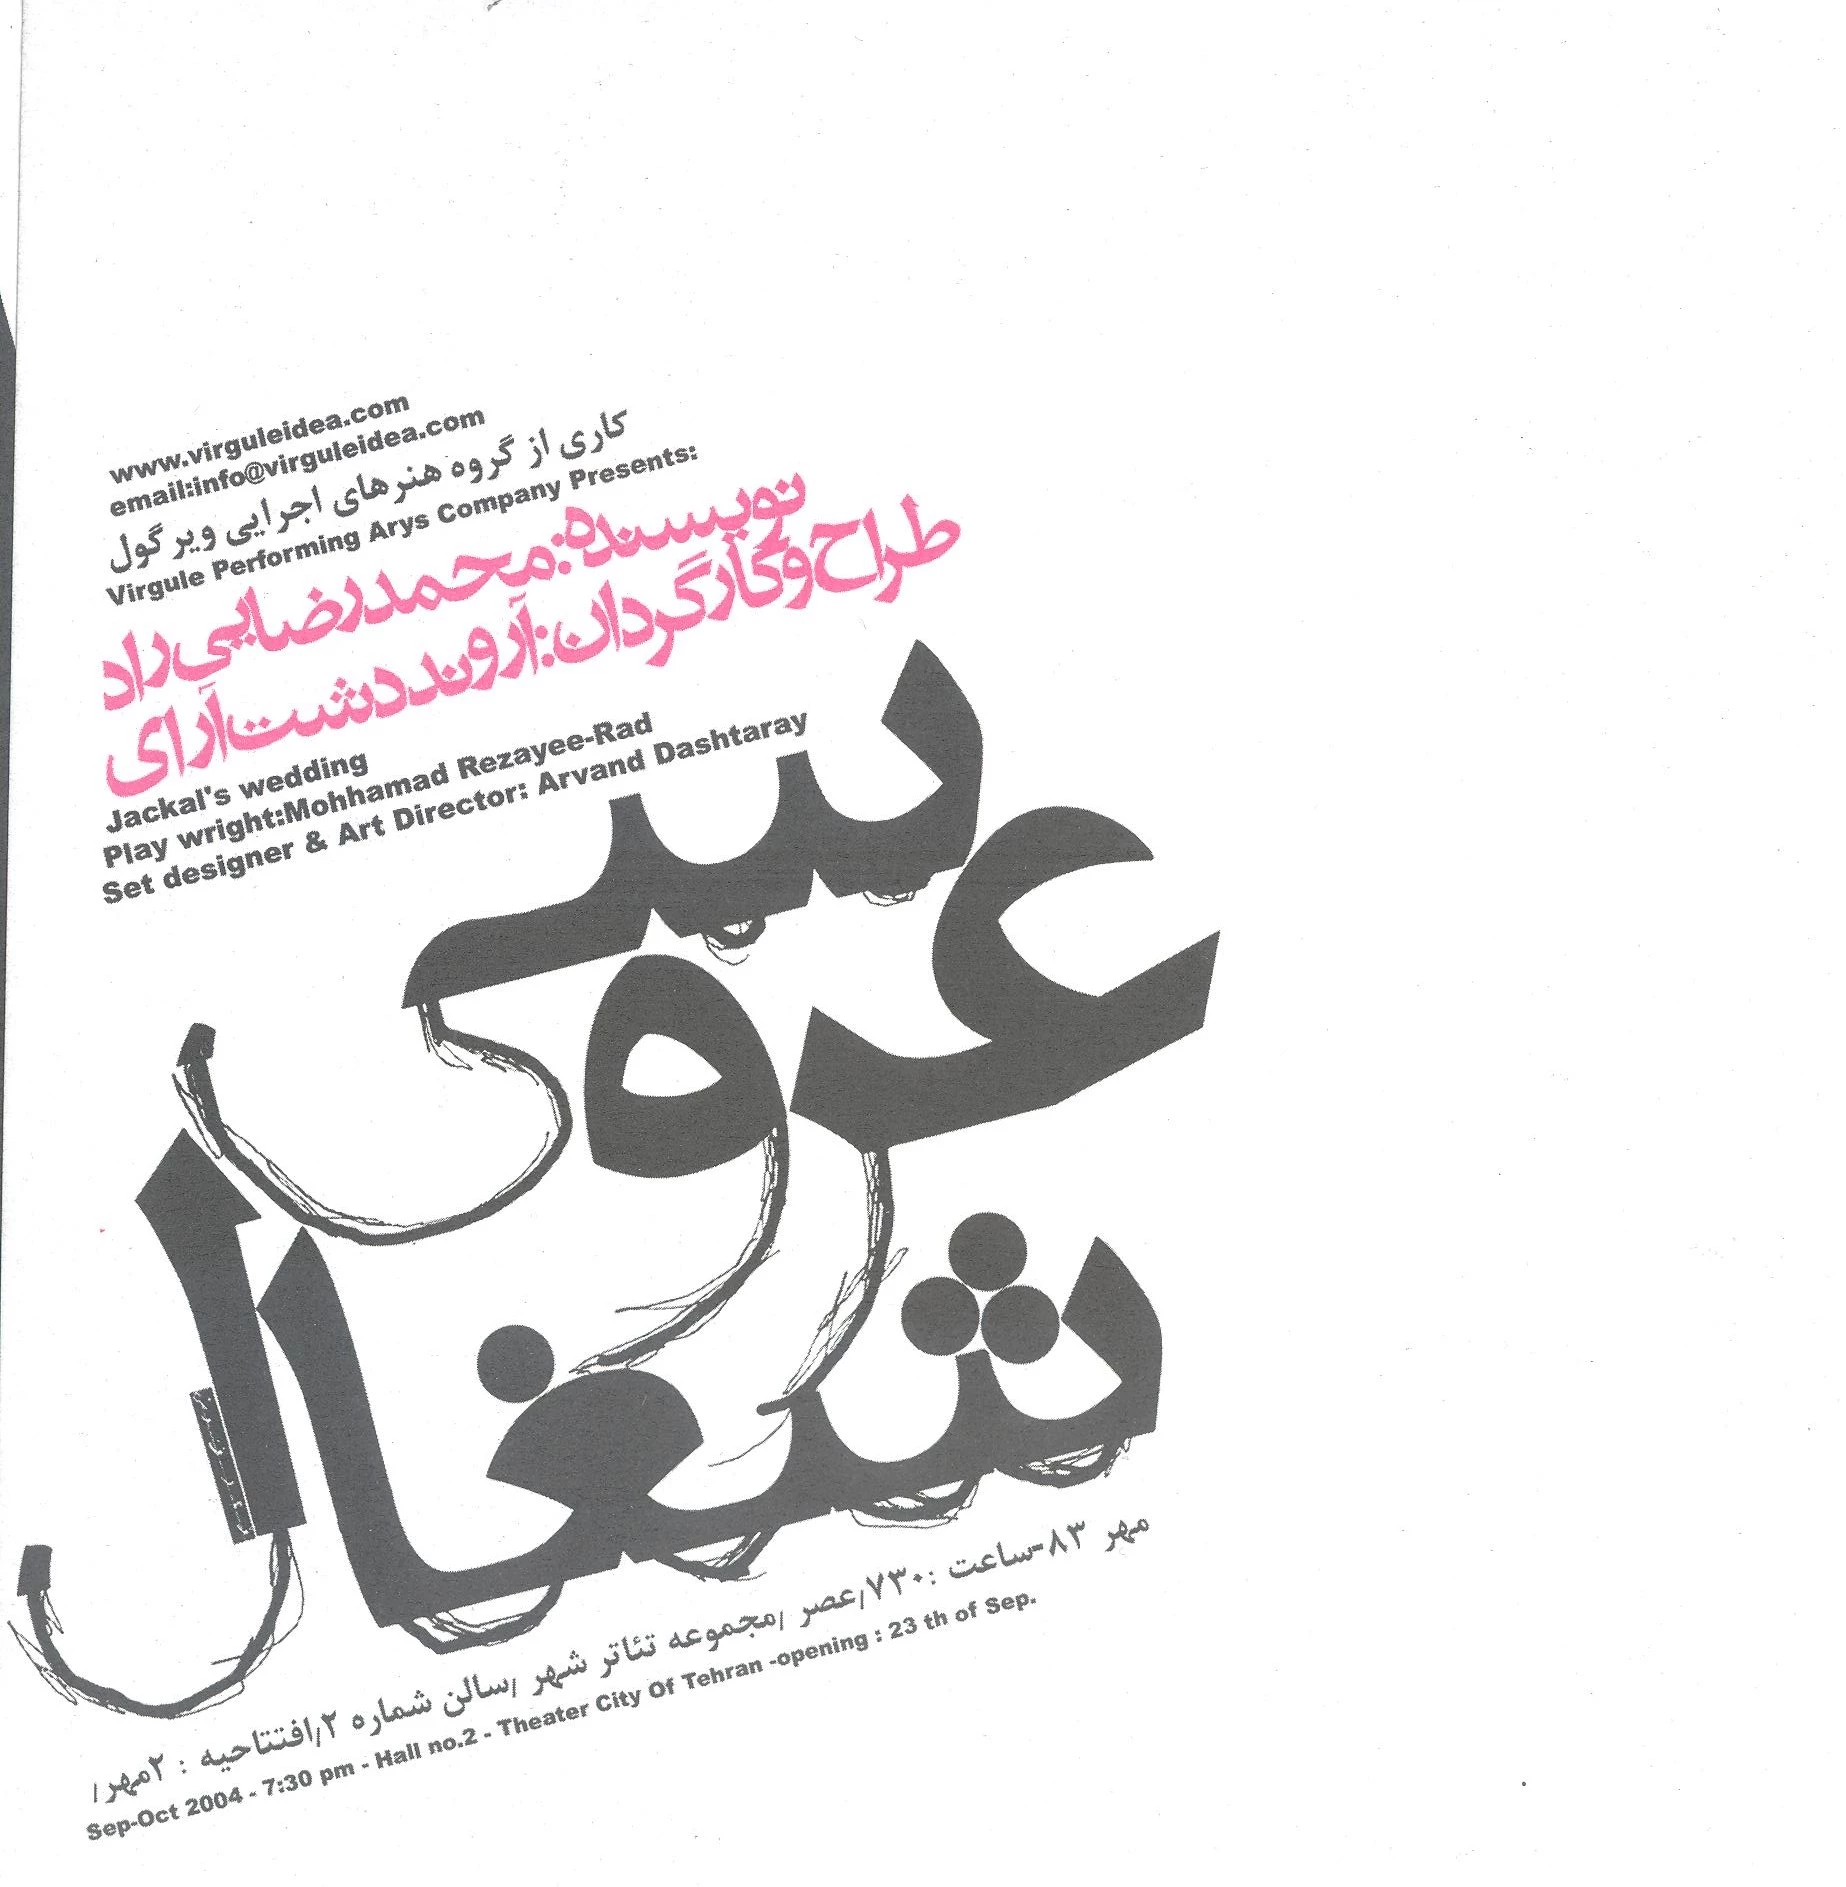 www.virguleidea.com
email:info@virguleidea.com
کاری از گروه هنرهای اجرایی ویرگول
Virgule Performing Arys Company Presents:
نویسنده:محمدرضایی‌راد
طراح‌وکارگردان:آرونددشت‌آرای
Jackal's wedding
Play wright:Mohhamad Rezayee-Rad
Set designer & Art Director: Arvand Dashtaray
عروسی
شغال
مهر ۸۳-ساعت :۷۳۰/عصر /مجموعه تئاتر شهر /سالن شماره ۲/افتتاحیه : ۲مهر/
Sep-Oct 2004 - 7:30 pm - Hall no.2 - Theater City Of Tehran -opening : 23 th of Sep.